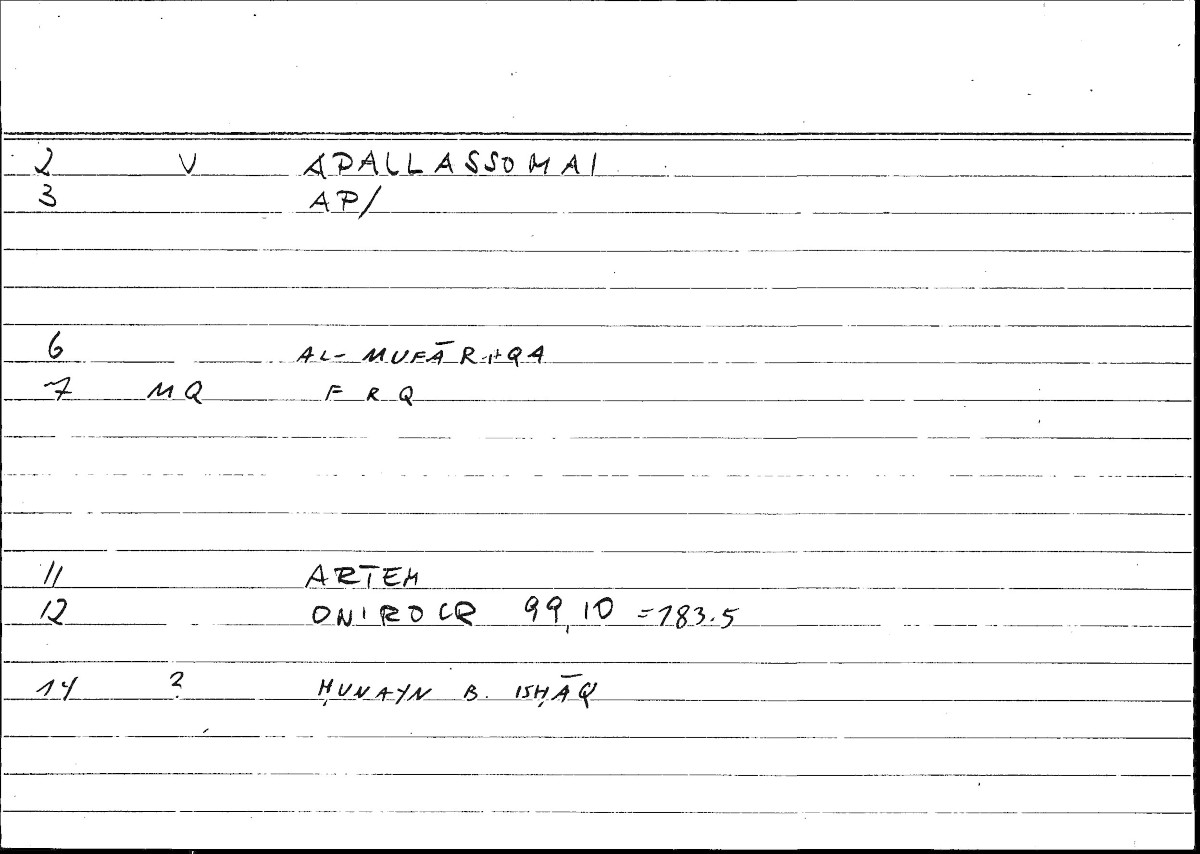 2 V APALLASSOMAI
3 AP/
6 AL- MUFĀR-QA
7 MQ F R Q
11 ARTEM
12 ONIROCR 99,10 =183.5
14 ? ḤUNAYN B. ISḤĀQ